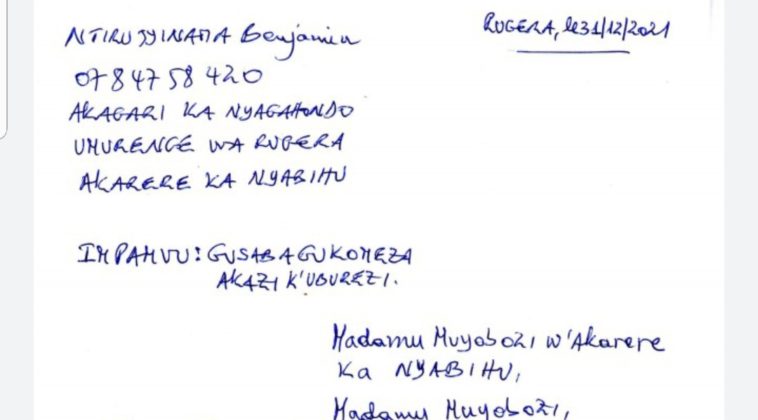 RUGERA, le 31/12/2021
NTIRUSHINAMA Benjamin
0784758420
AKAGARI KA NYAGAHONDO
UMURENGE WA RUGERA
AKARERE KA NYABIHU
IMPAMVU: GUSABA GUKOMEZA
AKAZI K'UBUREZI.
Madamu Muyobozi w'Akarere
Ka NYABIHU,
Madamu Muyobozi,